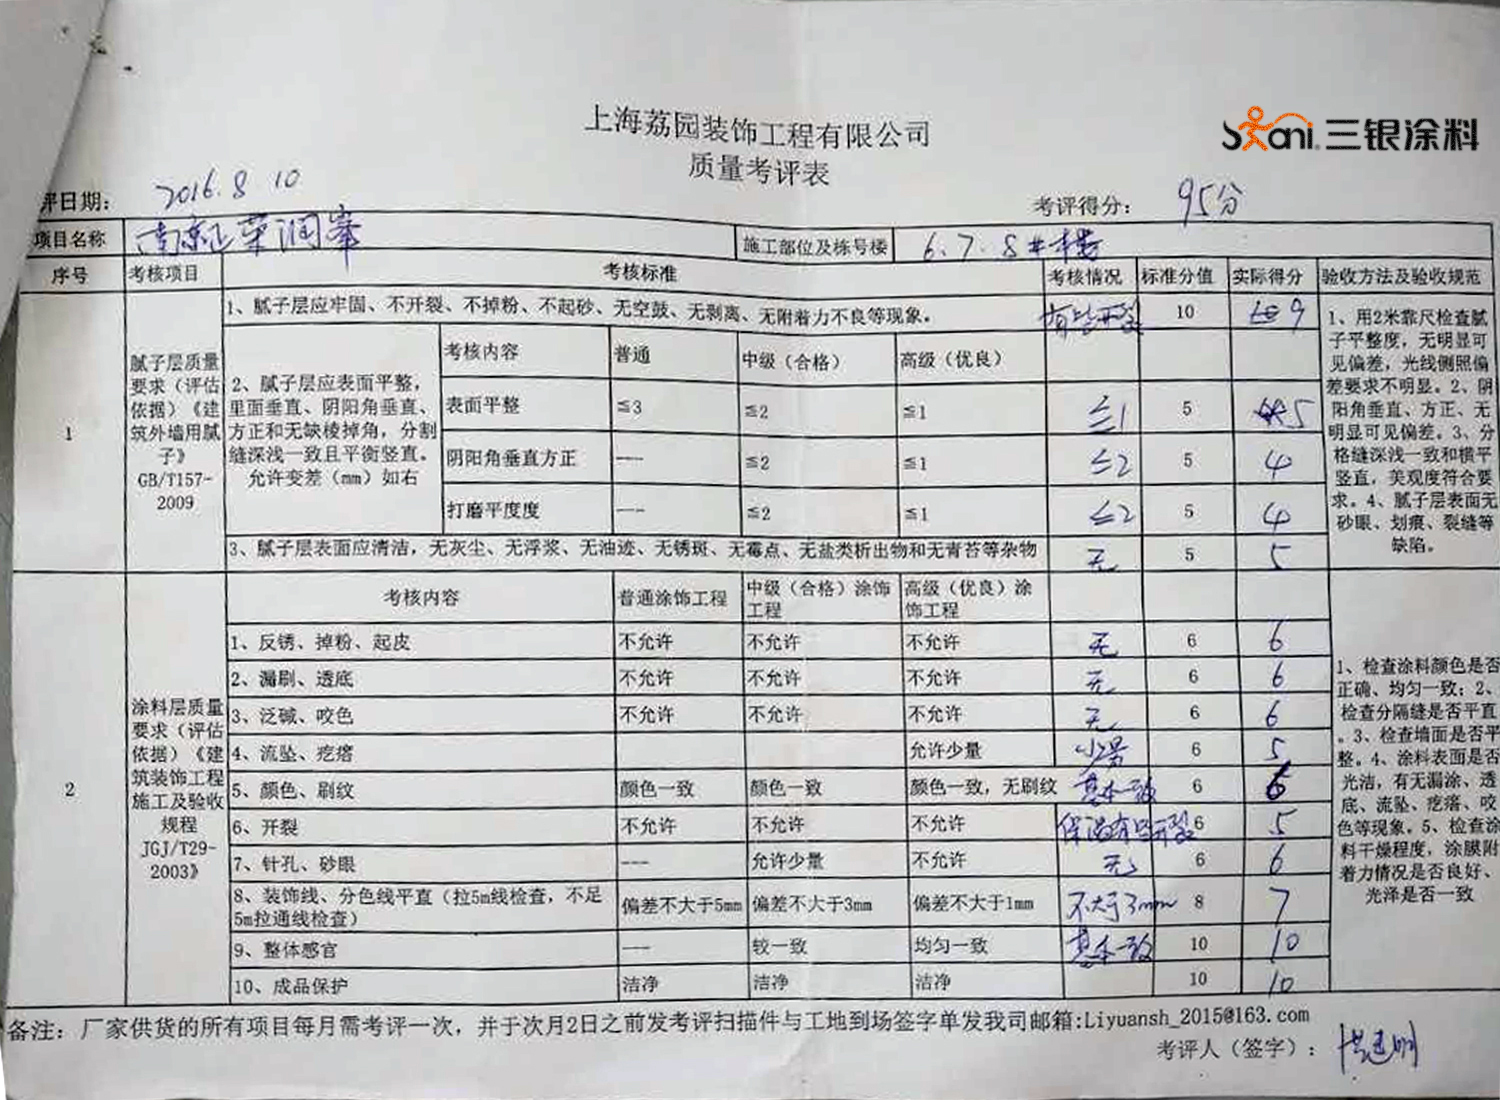 Skani® 三银涂料
上海荔园装饰工程有限公司
质量考评表
评日期： 2016.8 10 考评得分： 95分
项目名称 南京正荣润峯 施工部位及栋号楼 6.7.8#楼
序号 考核项目 考核标准 考核情况 标准分值 实际得分 验收方法及验收规范
1
腻子层质量
要求（评估
依据）《建
筑外墙用腻
子》
GB/T157-
2009
1、腻子层应牢固、不开裂、不掉粉、不起砂、无空鼓、无剥离、无附着力不良等现象。 有些开裂 10 9
2、腻子层应表面平整，
里面垂直、阴阳角垂直、
方正和无缺棱掉角，分割
缝深浅一致且平衡竖直。
允许变差（mm）如右
考核内容 普通 中级（合格） 高级（优良）
表面平整 ≦3 ≦2 ≦1 ≤1 5 5
阴阳角垂直方正 --- ≦2 ≦1 ≤2 5 4
打磨平度度 --- ≦2 ≦1 ≤2 5 4
3、腻子层表面应清洁，无灰尘、无浮浆、无油迹、无锈斑、无霉点、无盐类析出物和无青苔等杂物 无 5 5
1、用2米靠尺检查腻
子平整度，无明显可
见偏差，光线侧照偏
差要求不明显。2、阴
阳角垂直、方正、无
明显可见偏差。3、分
格缝深浅一致和横平
竖直，美观度符合要
求。4、腻子层表面无
砂眼、划痕、裂缝等
缺陷。
2
涂料层质量
要求（评估
依据）《建
筑装饰工程
施工及验收
规程
JGJ/T29-
2003》
考核内容 普通涂饰工程 中级（合格）涂饰工程 高级（优良）涂饰工程
1、反锈、掉粉、起皮 不允许 不允许 不允许 无 6 6
2、漏刷、透底 不允许 不允许 不允许 无 6 6
3、泛碱、咬色 不允许 不允许 不允许 无 6 6
4、流坠、疙瘩 允许少量 少量 6 5
5、颜色、刷纹 颜色一致 颜色一致 颜色一致，无刷纹 基本一致 6 6
6、开裂 不允许 不允许 不允许 保温有些开裂 6 5
7、针孔、砂眼 --- 允许少量 不允许 无 6 6
8、装饰线、分色线平直（拉5m线检查，不足
5m拉通线检查） 偏差不大于5mm 偏差不大于3mm 偏差不大于1mm 不大于3mm 8 7
9、整体感官 --- 较一致 均匀一致 基本一致 10 10
10、成品保护 洁净 洁净 洁净 10 10
1、检查涂料颜色是否
正确、均匀一致；2、
检查分隔缝是否平直
。3、检查墙面是否平
整。4、涂料表面是否
光洁，有无漏涂、透
底、流坠、疙瘩、咬
色等现象。5、检查涂
料干燥程度，涂膜附
着力情况是否良好、
光泽是否一致
备注：厂家供货的所有项目每月需考评一次，并于次月2日之前发考评扫描件与工地到场签字单发我司邮箱:Liyuansh_2015@163.com
考评人（签字）：